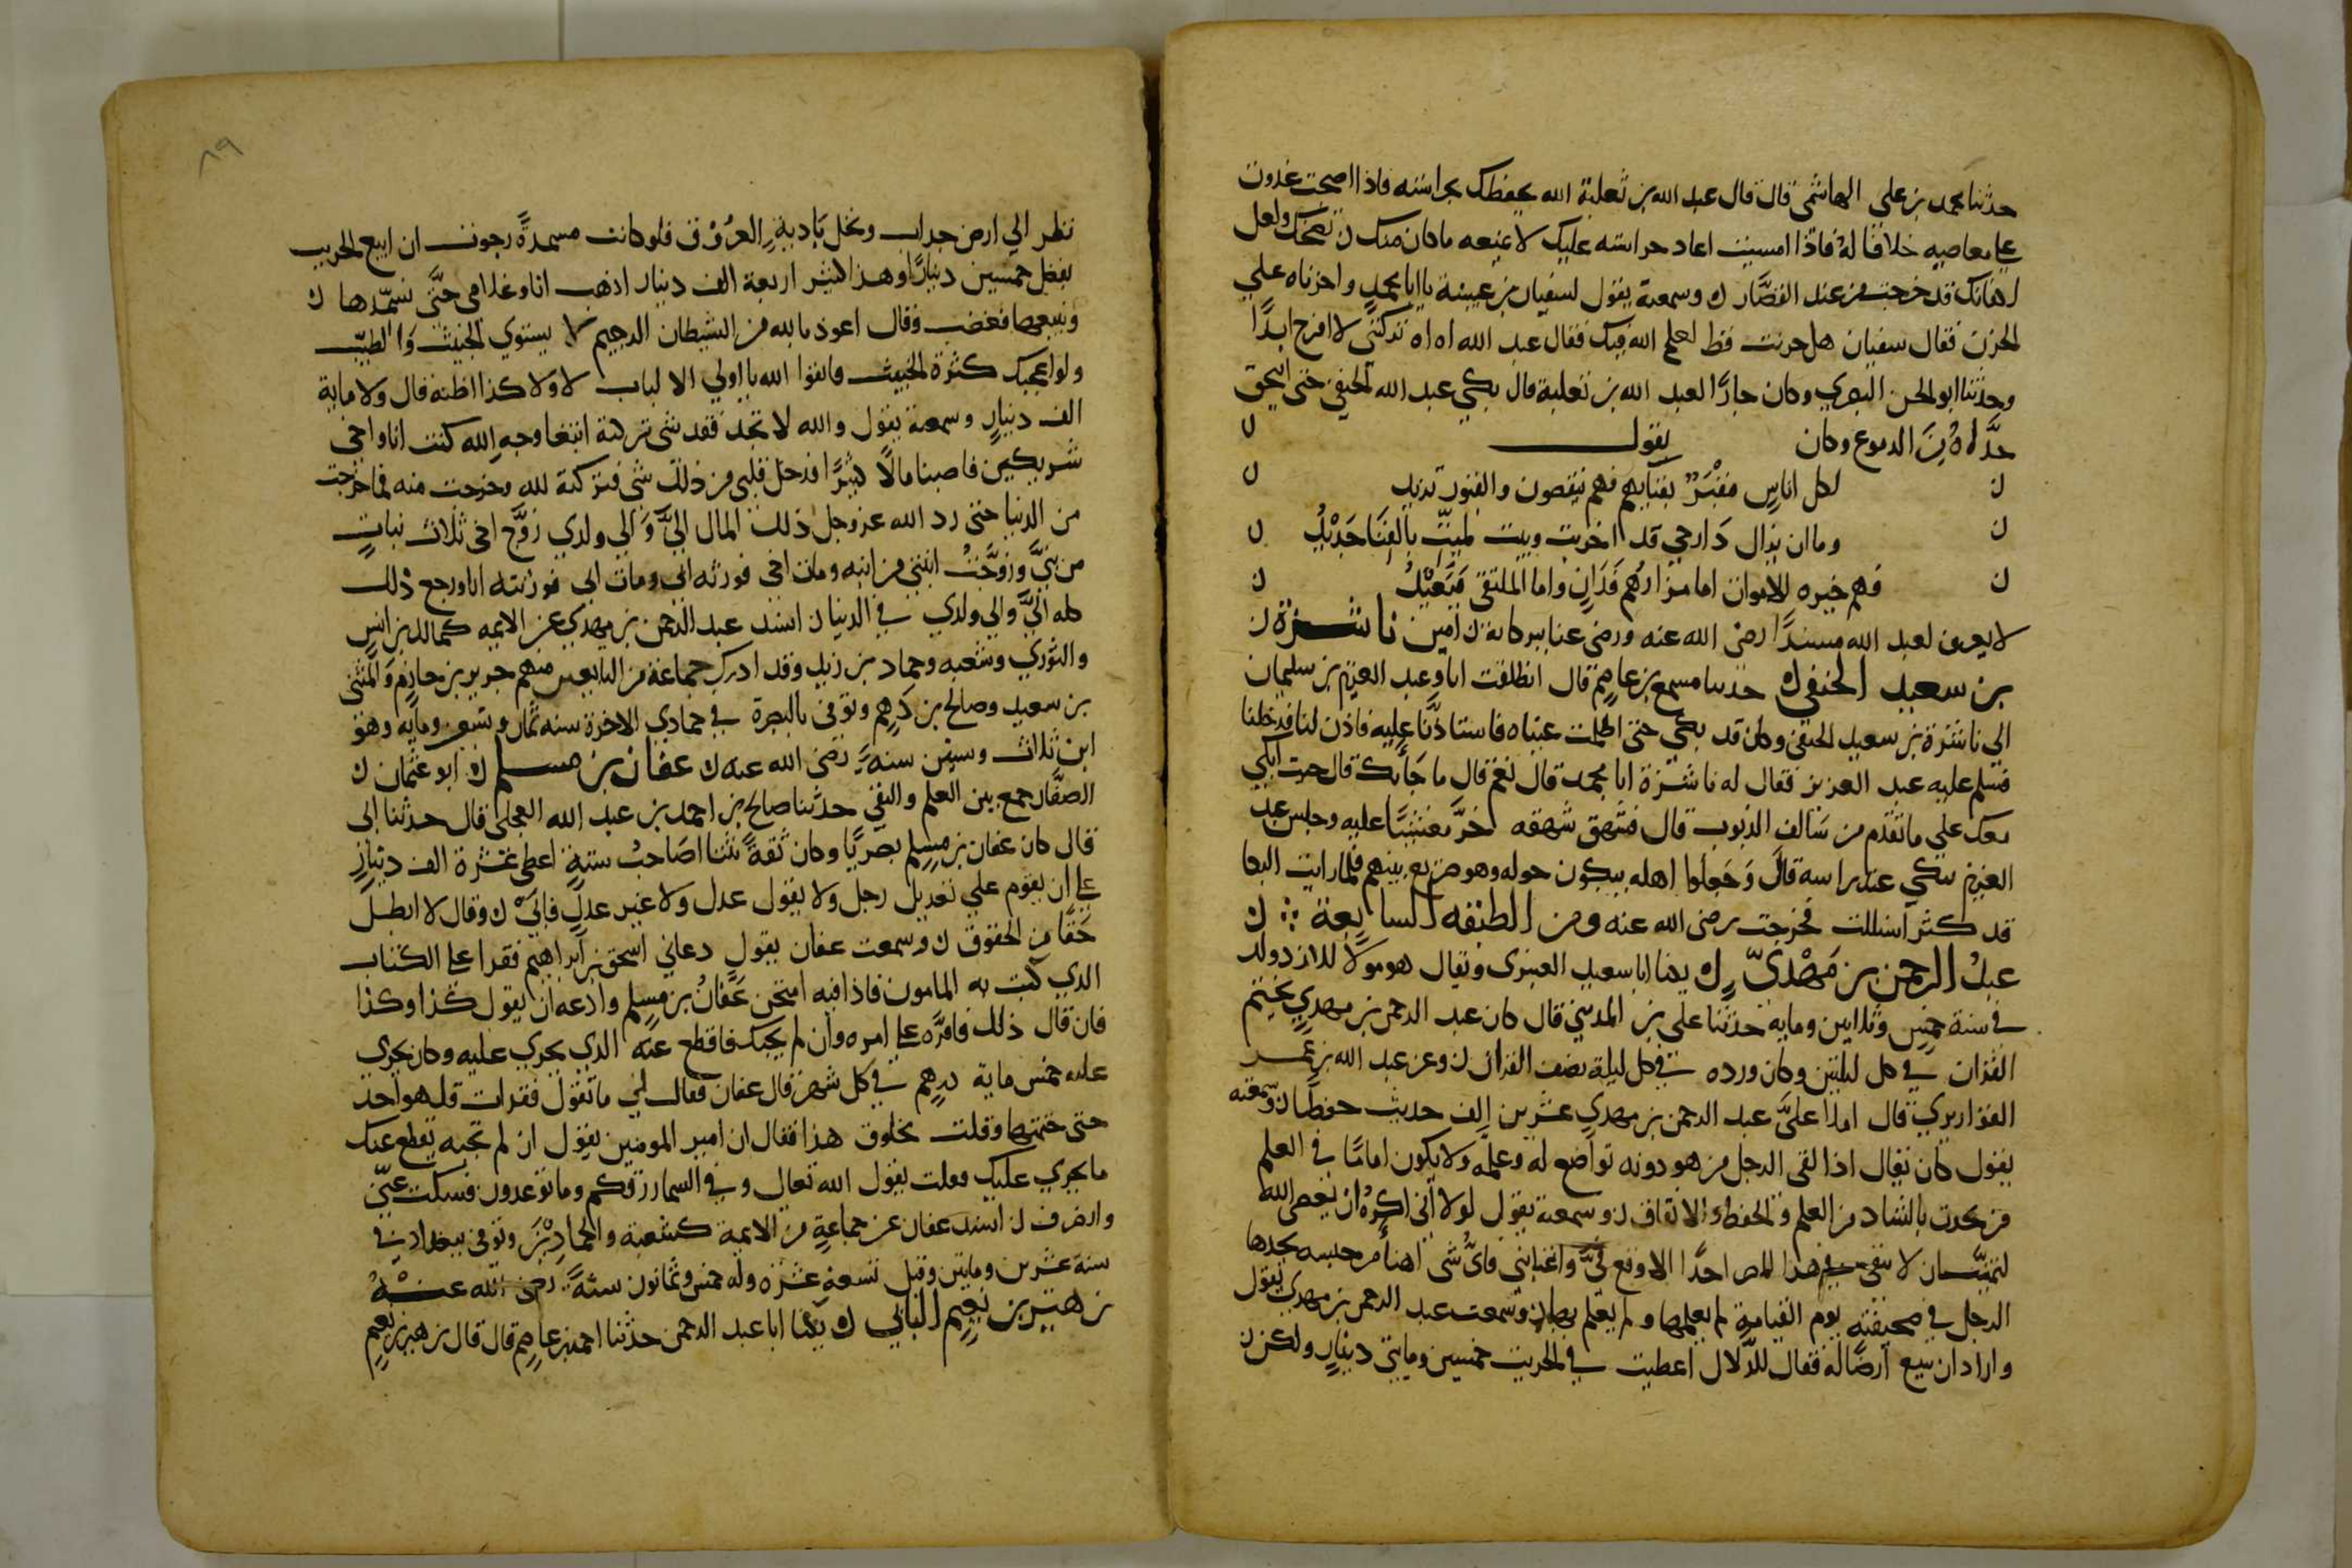 حدثنا محمد بن علي الهاشمي قال قال عبد الله بن ثعلبة الله يحفظك بحراسته فاذا اصبحت غدوت
علي معاصيه خلافا له فاذا امسيت اعاد حراسته عليك لا يمنعه ما كان منك ن تضحك ولعل
اكفانك قد خرجت من عند القصار ن وسمعته يقول لسفيان بن عيينة يا ابا محمد واحزناه علي
الحزن فقال سفيان هل حزنت قط لعلم الله فيك فقال عبد الله اه اه تركتني لا افرح ابدًا
وحدثنا ابو الحسن البصري وكان جارًا لعبد الله بن ثعلبة قال بكي عبد الله الحنفي حتى
الدموع وكان يقول ن
ن لكل اناسٍ مقبر بفنايهم فهم ينقصون والقبور تزيد ن
ن وما ان يزال دار حي قد اخربت وبيت لميت بالفنا جديد ن
ن فهم جيره الاموات اما مزارهم فدان واما الملتقى فبعيد ن
لا يعرف لعبد الله مسندًا رضي الله عنه ورضي عنا ببركاته ن امين ناشرة ن
بن سعيد الحنفي ن حدثنا مسمع بن عاصم قال انطلقت انا وعبد العزيز بن سليمان
الى ناشرة بن سعيد الحنفي وكان قد بكي حتى اظلمت عيناه فاستاذنا عليه فاذن لنا فدخلنا
فسلم عليه عبد العزيز فقال له ناشرة ابا محمد قال نعم قال ما جاء بك قال جيت ابكي
معك علي ما تقدم من سالف الذنوب قال فشهق شهقه خر مغشيًا عليه وجلس عبد
العزيز يبكي عند راسه قال وجعلوا اهله يبكون حوله وهو صريع بينهم فلما رايت البكا
قد كثر انسللت فخرجت رضي الله عنه ومن الطبقه السابعة ن
عبد الرحمن بن مهدي ن يكنا ابا سعيد العنبري ويقال هو مولا للازد ولد
في سنة خمس وثلاثين ومايه حدثنا علي بن المديني قال كان عبد الرحمن بن مهدي يختم
القران في كل ليلتين وكان ورده في كل ليلة نصف القران ن وعن عبد الله بن عمر
القواريري قال املا علي عبد الرحمن بن مهدي عشرين الف حديث حفظا ن وسمعته
يقول كان يقال اذا لقي الرجل من هو دونه تواضع له وعلمه ولا يكون اماما في العلم
من يحدث بالشاد من العلم والحفظ والاتقان ن وسمعته يقول لولا اني اكره ان يعصي الله
لتمنيت ان لا يبقي في هذا المصر احدًا الا وقع في واغتابني فاي شي اهنأ من حسنه يجدها
الرجل في صحيفته يوم القيامة لم يعملها ولم يعلم بها ن وسمعت عبد الرحمن بن مهدي يقول
واراد ان يبيع ارضًا له فقال للدلال اعطيت في الجريب خمسين ومايتي دينارٍ ولكن ن
٨٩
ننظر الي ارض جداب ونخل بادية العروق فلو كانت مسمدة رجوت ان ابيع الجريب
بفضل خمسين دينارًا وهذا كثير اربعة الف دينار اذهب انا وغلامي حتى نسمدها ن
ونبيعها فغضب وقال اعوذ بالله من الشيطان الرجيم لا يستوي الخبيث والطيب
ولو اعجبك كثرة الخبيث واتقوا الله يا اولي الالباب لا ولا كذا اظنه قال ولا ماية
الف دينارٍ وسمعته يقول والله لا تجد فقد شي تركته ابتغا وجه الله كنت انا واخي
شريكين فاصبنا مالًا كثيرًا فدخل قلبي من ذلك شي فتركته لله وخرجت منه فما خرجت
من الدنيا حتى رد الله عز وجل ذلك المال الي والي ولدي زوج اخي ثلاث بنات
من بني وزوجت ابنتي من ابنه ومات اخي فورثه ابي ومات ابي فورثته انا ورجع ذلك
كله الي والي ولدي في الدنيا ن اسند عبد الرحمن بن مهدي عن الايمه كمالك بن انس
والثوري وشعبه وحماد بن زيد وقد ادرك جماعة من التابعين منهم جرير بن حازم والمثنى
بن سعيد وصالح بن درهم وتوفي بالبصرة في جمادي الاخرة سنه ثمان وتسعين ومايه وهو
ابن ثلاث وستين سنة رضي الله عنه ن عفان بن مسلم ن ابو عثمان ن
الصفار جمع بين العلم والتقي حدثنا صالح بن احمد بن عبد الله العجلي قال حدثنا ابي
قال كان عفان بن مسلم بصريًا وكان ثقة ثبتا صاحب سنةٍ اعطي عشرة الف دينارٍ
علي ان يقوم علي تعديل رجل ولا يقول عدل ولا غير عدل فابي ن وقال لا ابطل
حقًا من الحقوق ن وسمعت عفان يقول دعاني اسحق بن ابراهيم فقرا علي الكتاب
الذي كتب به المامون فاذا فيه امتحن عفان بن مسلم وادعه ان يقول كذا وكذا
فان قال ذلك فاقره علي امره وان لم يجبك فاقطع عنه الذي يجري عليه وكان يجري
عليه خمس ماية درهم في كل شهر قال عفان فقال لي ما تقول فقرات قل هو احد
حتى ختمتها وقلت مخلوق هذا فقال ان امير المومنين يقول ان لم تجبه يقطع عنك
ما يجري عليك فقلت يقول الله تعال وفي السما رزقكم وما توعدون فسكت عني
وانصرف ن اسند عفان عن جماعةٍ من الايمة كشعبة والحمادين وتوفي ببغداد في
سنة عشرين ومايتين وقيل تسعة عشره وله خمس وثمانون سنة رضي الله عنه
زهير بن نعيم البابي ن يكنا ابا عبد الرحمن حدثنا احمد بن عاصم قال قال زهير بن نعيم